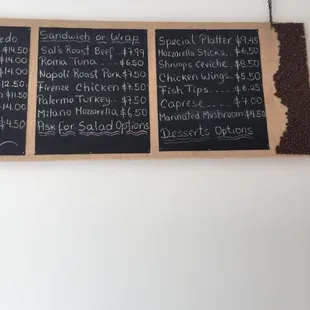 edo
$14.50
$14.00
$14.00
12.50
$11.50
$14.00
$4.50
Sandwich or Wrap
Sal's Roast Beef $7.99
Roma Tuna .... $6.50
Napoli Roast Pork $7.50
Firenze Chicken $7.50
Palermo Turkey.. $7.50
Milano Mozzarella $6.50
Ask for Salad Options
Special Platter $9.45
Mozzarella Sticks.. $6.50
Shrimps Ceviche.. $8.50
Chicken Wings.. $5.50
Fish Tips.... $6.25
Caprese.... $7.00
Marinated Mushroom $4.50
Desserts Options